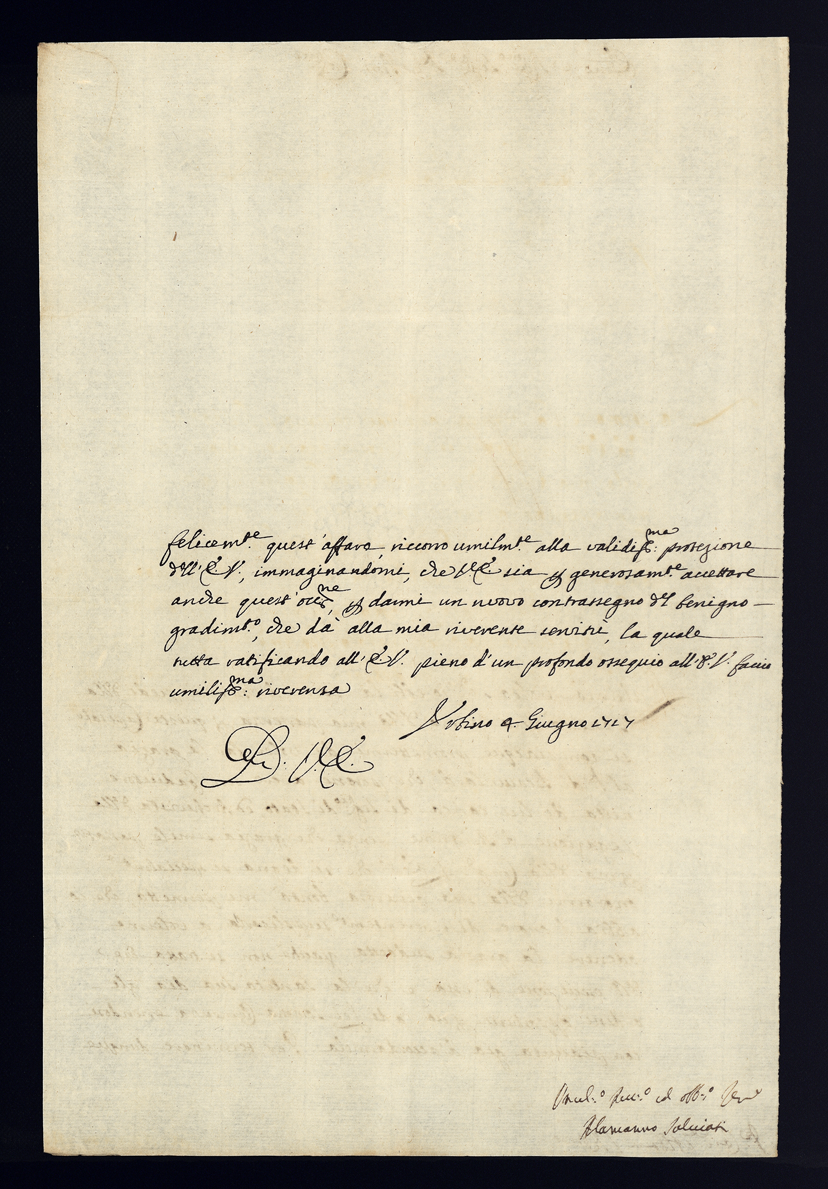 felicem.te quest'affare, riccorro umilm.te alla validiss:ma protezione
dell'E.V., immaginandomi, che V.E. sia p generosam.te accettare
anche quest'occ.ne, e p darmi un nuovo contrassegno del benigno
gradim.to, che dà alla mia riverente servitù, la quale
tutta ratificando all'E.V. pieno d'un profondo ossequio all'E.V. faccio
umiliss:ma riverenza
Urbino 4. Giugno 1717
D. V.E.
Umil.o Dev.o ed obb.o Ser
Alamanno Salviati